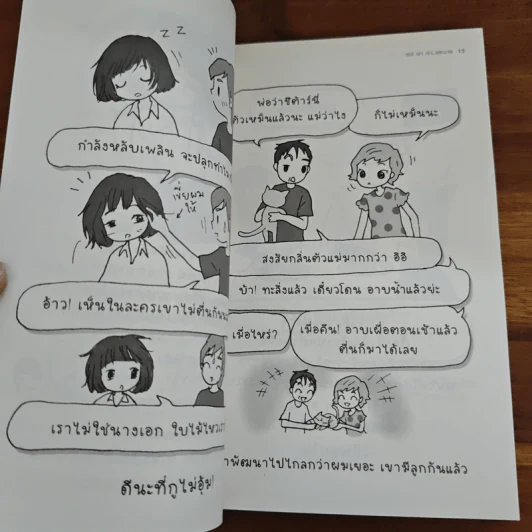 Z Z
กำลังหลับเพลิน จะปลุกทำไม
เขี่ยผม
ให้
อ้าว! เห็นในละครเขาไม่ตื่นกัน
เราไม่ใช่นางเอก ใบไม้ไหว
ดีนะที่กูไม่อุ้ม!
13
พ่อว่าชีต้าร์นี่
ตัวเหม็นแล้วนะ แม่ว่าไง
ก็ไม่เหม็นนะ
สงสัยกลิ่นตัวแม่มากกว่า ฮิฮิ
บ้า! ทะลึ่งแล้ว เดี๋ยวโดน อาบน้ำแล้วย่ะ
เมื่อไหร่?
เมื่อคืน! อาบเผื่อตอนเช้าแล้ว
ตื่นก็มาได้เลย
พัฒนาไปไกลกว่าผมเยอะ เขามีลูกกันแล้ว